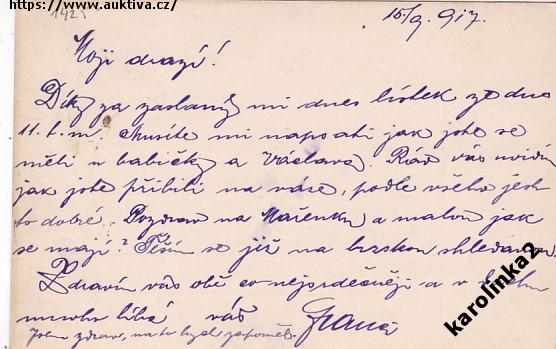 https://www.auktiva.cz/
1425
15./9. 917.
Moji drazí!
Díky za zaslaný mi dnes lístek ze dne
11. t. m. Musíte mi napsati jak jste se
měli u babičky a Václava. Rád vás uvidím
jak jste přibili na váze, podle všeho jest
to dobré. Pozdrav na Mařenku a malou jak
se mají? Těším se již na brzskou shledanou.
Zdravím vás obě co nejsrdečněji a v duchu
mnoho líbá váš Franci
Jsem zdráv, na to bych zapoměl.
karolinka2